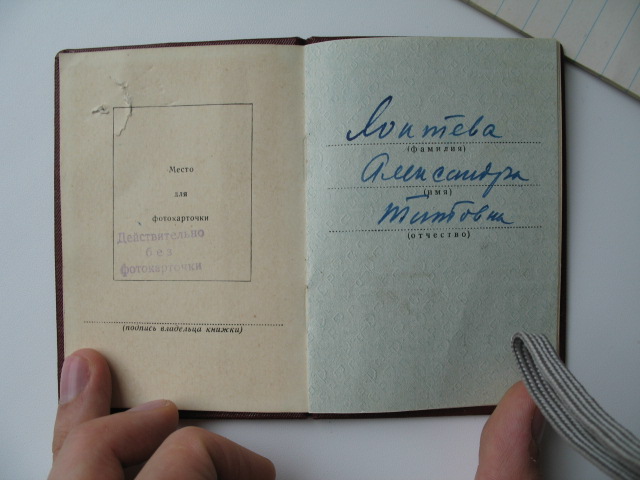 Место
для
фотокарточки
Действительно
без
фотокарточки
(подпись владельца книжки)
Лоптева
(фамилия)
Александра
(имя)
Титовна
(отчество)